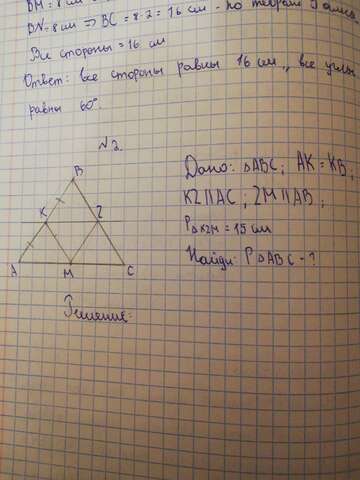 BM = 8 см
BN = 8 см => BC = 8·2 = 16 см - по теореме Фалеса
Все стороны = 16 см
Ответ: все стороны равны 16 см, все углы
равны 60°.
N2.
B
K
Z
A
M
C
Дано: △ABC; AK = KB;
KZ || AC; ZM || AB;
P△KZM = 15 см
Найди: P△ABC - ?
Решение: